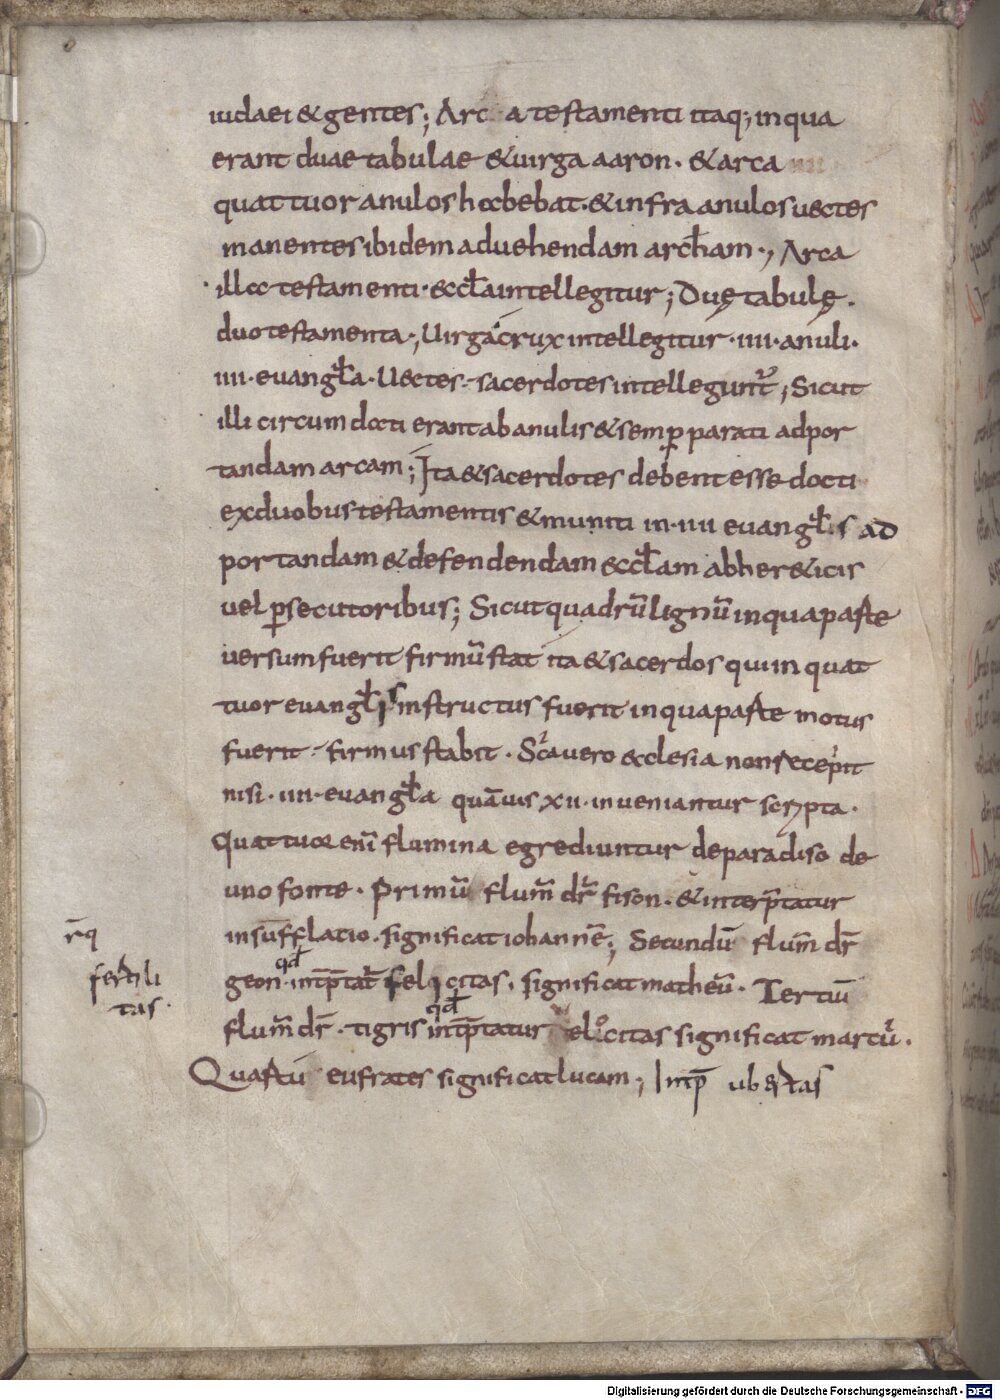 iudaei & gentes; Arc a testamenti itaq; in qua
erant duae tabulae & uirga aaron. & arca
quattuor anulos habebat. & infra anulos uectes
manentes ibidem aduehendam archam., Arca
illa testamenti. eccl̅a intellegitur; Duę tabulę.
duo testamenta; Uirga crux intellegitur. IIII. anuli.
IIII. euangl̅a. Uectes. sacerdotes intellegunt̅; Sicut
illi circumdati erant ab anulis & semp̲ parati ad por
tandam arcam; Ita & sacerdotes debent esse docti
ex duobus testamentis & muniti in. IIII euangl̅.s ad
portandam & defendendam eccl̅am ab her&icis
uel p̲secutoribus; Sicut quadrū lignū in qua parte
uersum fuerit firmū stat ita & sacerdos qui in quat
tuor euangl̅is instructus fuerit in qua parte motus
fuerit. firmus stabit. Sc̅a uero ecclesia non recepit
nisi. IIII. euangl̅a quāuis XII. inueniantur scripta.
Quattuor eni̅ flumina egrediuntur de paradiso de
uno fonte. Primū flum̅ dr̅ fison. & interp̅tatur
insufflatio. significat iohannē; Secundū flum̅ dr̅
r̅q
qd̅
geon. intp̅tat̅ felicitas. significat matheū. Tertiū
fertili
tas.
qd̅
flum̅ dr̅. tigris intp̅tatur elocitas significat marcū.
Quartū eufrates significat lucam; Intp̅ ubertas
Digitalisierung gefördert durch die Deutsche Forschungsgemeinschaft - DFG